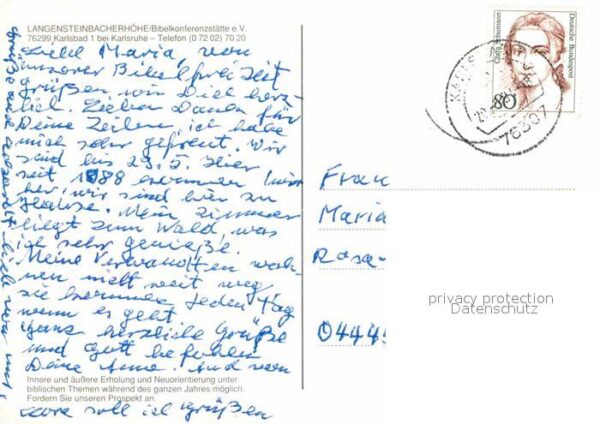 LANGENSTEINBACHERHÖHE/Bibelkonferenzstätte e.V.
76299 Karlsbad 1 bei Karlsruhe – Telefon (0 72 02) 70 20
Liebe Maria, von
unserer Bibelfreizeit
grüßen wir Dich herz-
lich. Lieben Dank für
Deine Zeilen, ich habe
mich sehr gefreut. Wir
sind bis 29.5. hier
seit 1988 kommen
her, wir sind hier zu
Hause. Mein Zimmer
liegt zum Wald, was
ich sehr genieße.
Meine Verwandten woh-
nen nicht weit weg,
sie kommen jeden Tag
wenn es geht
Ganz herzliche Grüße
und Gott befohlen
Deine Anne. Und von
Innere und äußere Erholung und Neuorientierung unter
biblischen Themen während des ganzen Jahres möglich.
Fordern Sie unseren Prospekt an.
soll ich grüßen
Deutsche Bundespost
Clara Schumann
80
76307
Frau
Maria
Rosa-
0444
privacy protection
Datenschutz